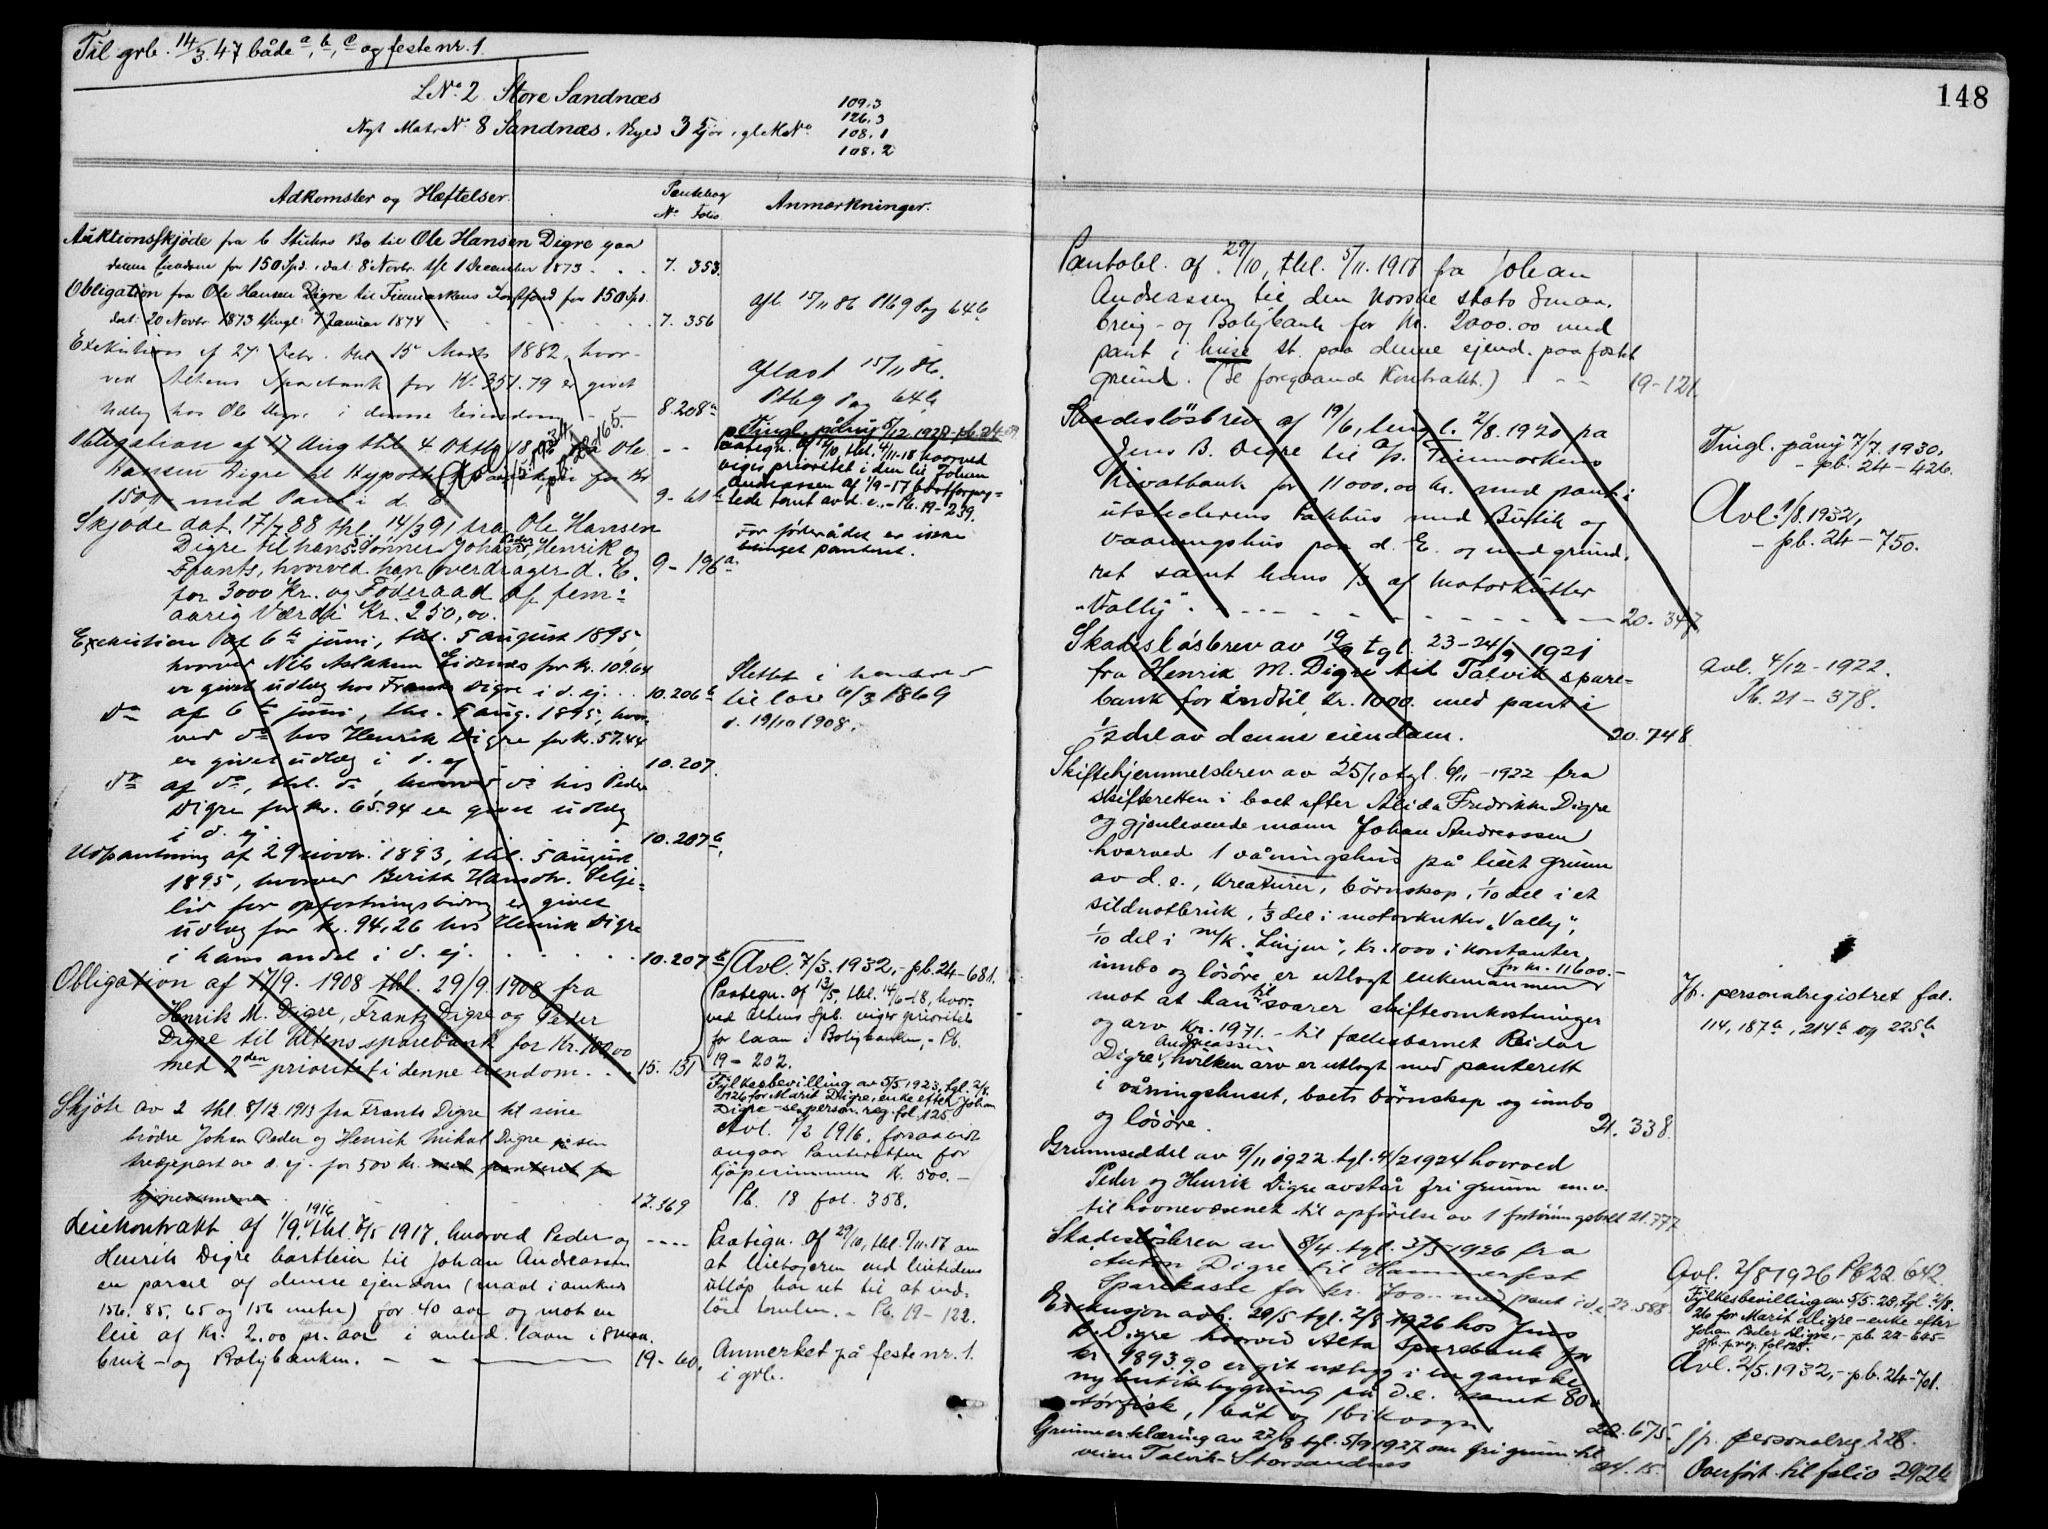 Til grb. 14/3.47 både a, b, c og feste nr. 1.
148
LNo 2 Store Sandnæs
Nyt Matr No 8 Sandnæs. Skyld 3 Ejor, gl. M No
109.3
126.3
108.1
108.2
Adkomster og Hæftelser.
Pantebog
No Folio
Anmærkninger.
Auktionsskjøde fra Bo til Ole Hansen Digre paa
denne Eiendom for 150 Spd. dat. 8 Novbr. tgl 1 December 1873 . . . 7. 353.
Obligation fra Ole Hansen Digre til Finmarkens for 150 Spd.
dat. 20 Novbr 1873 tingl. 7 Januar 1874 . . . 7. 356
afl. 15/11 86 Pb 9 Pag 64 b
Exekution af 27 Febr. thl 15 Marts 1882, hvor-
ved Altens Sparebank for Kr. 351.79 er givet
Udlæg hos Ole Digre i denne Eiendom - 8.208 a
aflæst 15/11 86.
Pb 9 Pag 64 b
Obligation af 17 Aug thl 4 Oktb fra Ole
Hansen Digre til Hypoth for Kr
1500,- med Pant i d. E. 9-61 b
Tingl. påny 5/12 1927 - pb. 24-
paategn. af 4/10, thl. 4/11-18 hvorved
viges prioritet i den til Johan
Andreassen af 1/9-17 bortforpag=
tede tomt av d. e. - Pb. 19-239.
For føderådet er ikke
tinget panteret.
Skjøde dat. 17/7 88 thl. 14/3 91 fra Ole Hansen
Digre til hans Sønner Johan Peder, Henrik og
Frants, hvorved han overdrager d. E. 9-196 a
for 3000 Kr. og Föderaad af fem=
aarig Værdi Kr. 250,00.
Execution af 6te juni, thl. 5 august 1895,
hvorved Nils Aslaksen Eidnæs for kr. 109.64
er givet udlæg hos Frants Digre i d. ej. . . 10.206 b
do af 6te juni, thl. 5 aug. 1895, hvor-
ved do hos Henrik Digre for kr. 57.44
er givet udlæg i d. ej 10.207.
do af do, thl. do, hvorved do hos Peder
Digre for kr. 65.94 er givet udlæg
i d. ej 10.207 b,
Slettet i henhold
til lov 6/3 1869
d. 19/10 1908.
Udpantning af 29 novbr. 1893, thl. 5 august
1895, hvorved Berith Hansdtr. Selje=
lid for opfostringsbidrag er givet
udlæg for kr. 94,26 hos Henrik Digre
i hans andel i d. ej. . . . . . 10.207 b
Obligation af 17/9. 1908 thl. 29/9. 1908 fra
Henrik M. Digre, Frantz Digre og Peder
Digre til Altens sparebank for Kr. 1000,00
med 2den prioritet i denne eiendom. . 15. 151
Avl. 7/3. 1932, - pb. 24-681.
Paategn. af 13/5, thl. 14/6-18, hvor-
ved Altens Spb. viger prioritet
for laan i Boligbanken, - Pb.
19-202.
Fylkesbevilling av 5/5 1923, tgl. 2/8
1926 for Marit Digre, enke efter Johan
Digre - se person. reg. fol. 125
Skjöte av 2 thl. 8/12 1913 fra Frants Digre til sine
brödre Johan Peder og Henrik Mikal Digre på sin
tredjepart av d. ej. for 500 kr. med panteret for
kjøpesummen. 17.569
Avl. 7/2 1916, forsaavidt
angaar Panteretten for
Kjöpesummen Kr. 500.-
Pb. 18 fol. 358.
Leiekontrakt af 1/9. 1916 thl. 7/5 1917, hvorved Peder og ----
Henrik Digre bortleier til Johan Andreassen
en parcel af denne ejendom (maal i omkreds
156. 85, 65 og 156 meter) for 40 aar og mot en
leie af Kr. 2.00 pr. aar i anled. laan i Smaa-
bruk- og Boligbanken. - - 19-60.
Paategn. af 29/10, thl. 5/11. 17 om
at leietageren ved leietidens
utløp har ret til at ind-
löse tomten. - Pb. 19-122.
Anmerket på feste nr. 1.
i grb.
Pantobl. af 29/10, thl. 5/11. 1917 fra Johan
Andreassen til den Norske stats Smaa-
brug- og Boligbank for Kr. 2000.00 med
pant i huse st. paa denne ejend. paa fæstet
grund. (Se foregaaende Kontrakt.) - - - 19-121.
Skadeslösbrev af 19/6, tingl. 2/8. 1920 fra
Jens B. Digre til A/s. Finmarkens
Privatbank for 11000.00 kr. med pant i
utstederens Pakhus med Butik og
vaaningshus paa d. E. og med grund-
ret samt hans 1/3 af motorkutter
"Vally". - - - - 20. 347
Tingl. påny 7/7. 1930.
- pb. 24-426.
Avl. 1/8. 1932,
- pb. 24-750.
Skadeslösbrev av 19/9 tgl. 23-24/9 1921
fra Henrik M. Digre til Talvik spare-
bank for indtil kr. 1000. med pant i
1/2 del av denne eiendom. 20.748
Avl. 4/12-1922.
Pb. 21-378.
Skiftehjemmelsbrev av 25/10 tgl. 6/11-1922 fra
skifteretten i boet efter Alida Fredrikke Digre
og gjenlevende mann Johan Andreassen
hvorved 1 våningshus på leiet grunn
av d. e., kreaturer, börnskap, 1/10 del i et
sildnotbruk, 1/3 del i motorkutter "Vally",
1/10 del i m/k. "Linjen", kr. 1000 i kontanter
innbo og lösöre, er utlagt enkemannen for kr. 11600.-
mot at han til svarer skifteomkostninger
og arv kr. 1971.- til fællesbarnet Reidar
Andreassen Digre, hvilken arv er utlagt med panterett
i våningshuset, boets börnskap og innbo
og lösöre. 21.338.
Jfr. personalregistret fol.
114, 187 b, 214 b og 225 b
Grunnseddel av 9/11 1922 tgl. 4/2 1924 hvorved
Peder og Henrik Digre avstår fri grunn m.v.
til havnevesenet til opförelse av 1 fortöiningsbolt 21.777
Skadeslösbrev av 8/4 tgl. 3/5 1926 fra
Anton Digre til Hammerfest
Sparekasse for kr. 700.- med pant i d. e. 22.588
Avl. 2/8 1926 Pb 22. 642.
Fylkesbevilling av 5/5.23, tgl. 2/8.
26 for Marit Digre - enke efter
Johan Peder Digre, - pb. 22-645-
jfr. p.reg. fol. 125.
Eksekusjon avh. 29/5 tgl. 2/8 1926 hos Jens
B. Digre hvorved Alta Sparebank for
kr. 9893.90 er git utlegg i en ganske
ny butikbygning på d. e. samt 80
törfisk, 1 båt og 1 22.675.
Avl. 2/5. 1932, - pb. 24-701.
Grunnerklæring av 27/8 tgl. 5/9 1927 om fri grunn til
veien Talvik-Storsandnes 24. 15.
jfr. personalreg 228.
Overfört til folio 292 b